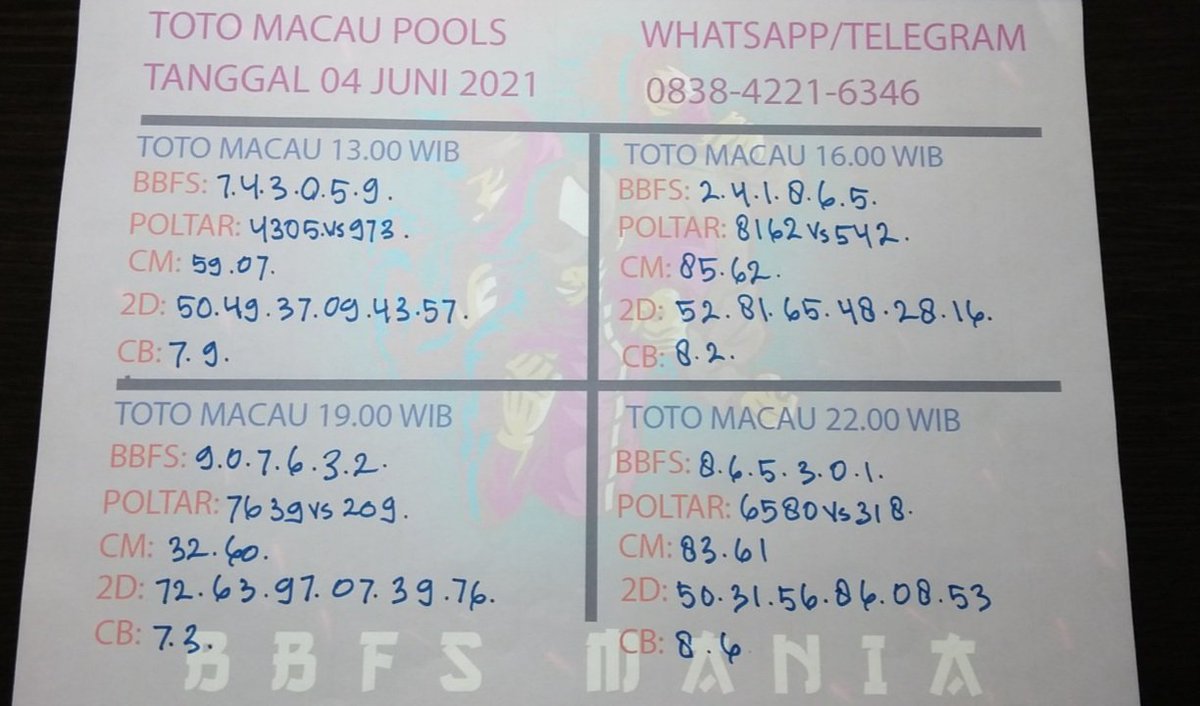 TOTO MACAU POOLS
TANGGAL 04 JUNI 2021
WHATSAPP/TELEGRAM
0838-4221-6346
TOTO MACAU 13.00 WIB
BBFS: 7.4.3.0.5.9.
POLTAR: 4305.vs 973.
CM: 59.07.
2D: 50.49.37.09.43.57.
CB: 7.9.
TOTO MACAU 16.00 WIB
BBFS: 2.4.1.8.6.5.
POLTAR: 8162 vs 542.
CM: 85.62.
2D: 52.81.65.48.28.16.
CB: 8.2.
TOTO MACAU 19.00 WIB
BBFS: 9.0.7.6.3.2.
POLTAR: 7639 vs 209.
CM: 32.60.
2D: 72.63.97.07.39.76.
CB: 7.3.
TOTO MACAU 22.00 WIB
BBFS: 8.6.5.3.0.1.
POLTAR: 6580 vs 318.
CM: 83.61
2D: 50.31.56.86.08.53
CB: 8.6
BBFS MANIA